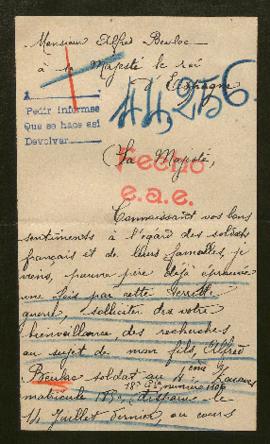 Monsieur Alfred Beuloc
à sa Majesté le roi
d'Espagne
44256
A
Pedir informes
Que se hace así
Devolver
Hecho
e.a.e.
(Sa Majesté,
Connaissant vos bons
sentiments à l'égard des soldats
français et de leurs familles, je
viens, pauvre père déjà éprouvé
une fois par cette terrible
guerre, solliciter de votre
bienveillance, des recherches
au sujet de mon fils, Alfred
Beuloc soldat au 4ème Zouaves
matricule disparu le
14 Juillet dernier, au cours